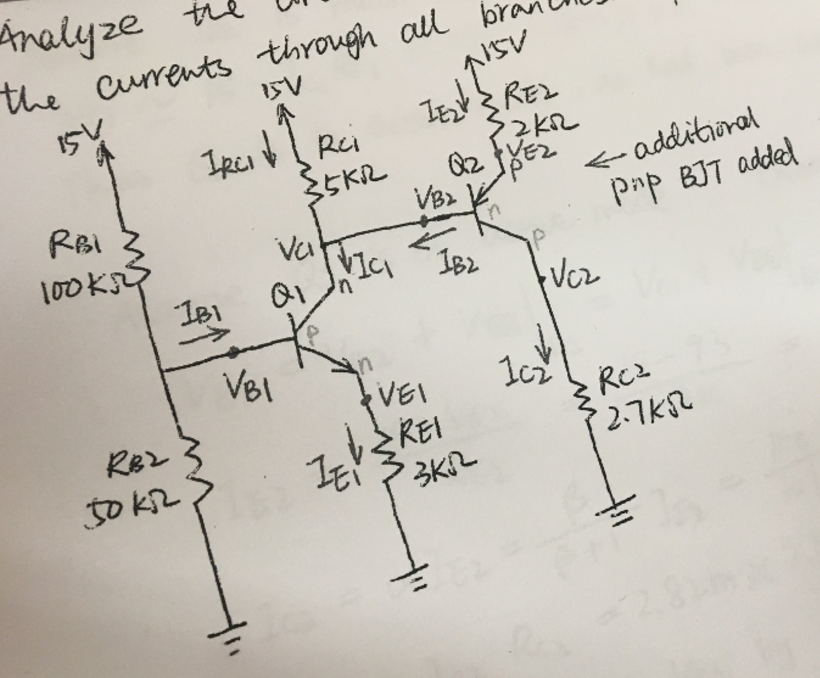 Analyze the
the currents through all branches
15V
15V
15V
IRC1
RC1
5KΩ
IE2
RE2
2KΩ
VE2
Q2
p
← additional
pnp BJT added
RB1
100KΩ
VB2
n
p
VC1
IC1
IB2
VC2
IB1
Q1
n
p
n
VB1
VE1
IC2
RC2
2.7KΩ
RB2
50KΩ
IE1
RE1
3KΩ